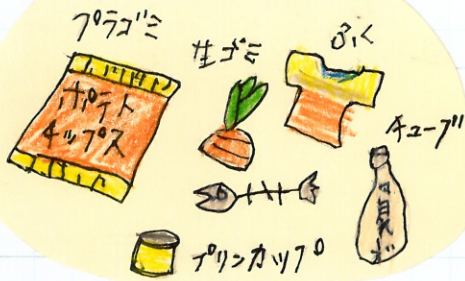 プラゴミ
ポテト
チップス
生ゴミ
ふく
チューブ
プリンカップ